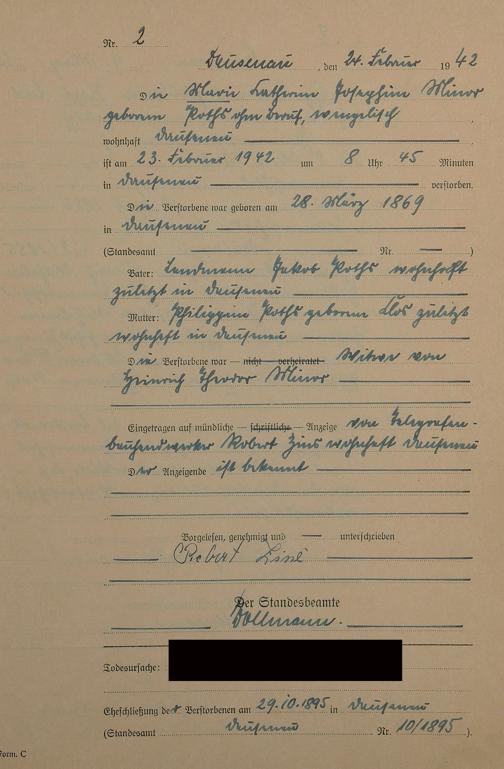 Nr. 2
Dausenau, den 24. Februar 1942
Die Marie Katharina Josephine Minor
geborene Poths ohne Beruf, evangelisch
wohnhaft Dausenau
ist am 23. Februar 1942 um 8 Uhr 45 Minuten
in Dausenau verstorben.
Die Verstorbene war geboren am 28. März 1869
in Dausenau
(Standesamt Nr. — )
Vater: Landmann Jakob Poths wohnhaft
zuletzt in Dausenau
Mutter: Philippine Poths geborene Clos zuletzt
wohnhaft in Dausenau
Die Verstorbene war — nicht verheiratet — Witwe von
Heinrich Theodor Minor
Eingetragen auf mündliche — schriftliche — Anzeige von Telegrafen-
bauhandwerker Robert Zins wohnhaft Dausenau
Der Anzeigende ist bekannt
Vorgelesen, genehmigt und — unterschrieben
Robert Zins
Der Standesbeamte
Dollmann.
Todesursache:
Eheschließung der Verstorbenen am 29.10.1895 in Dausenau
(Standesamt Dausenau Nr. 10/1895 ).
Form. C